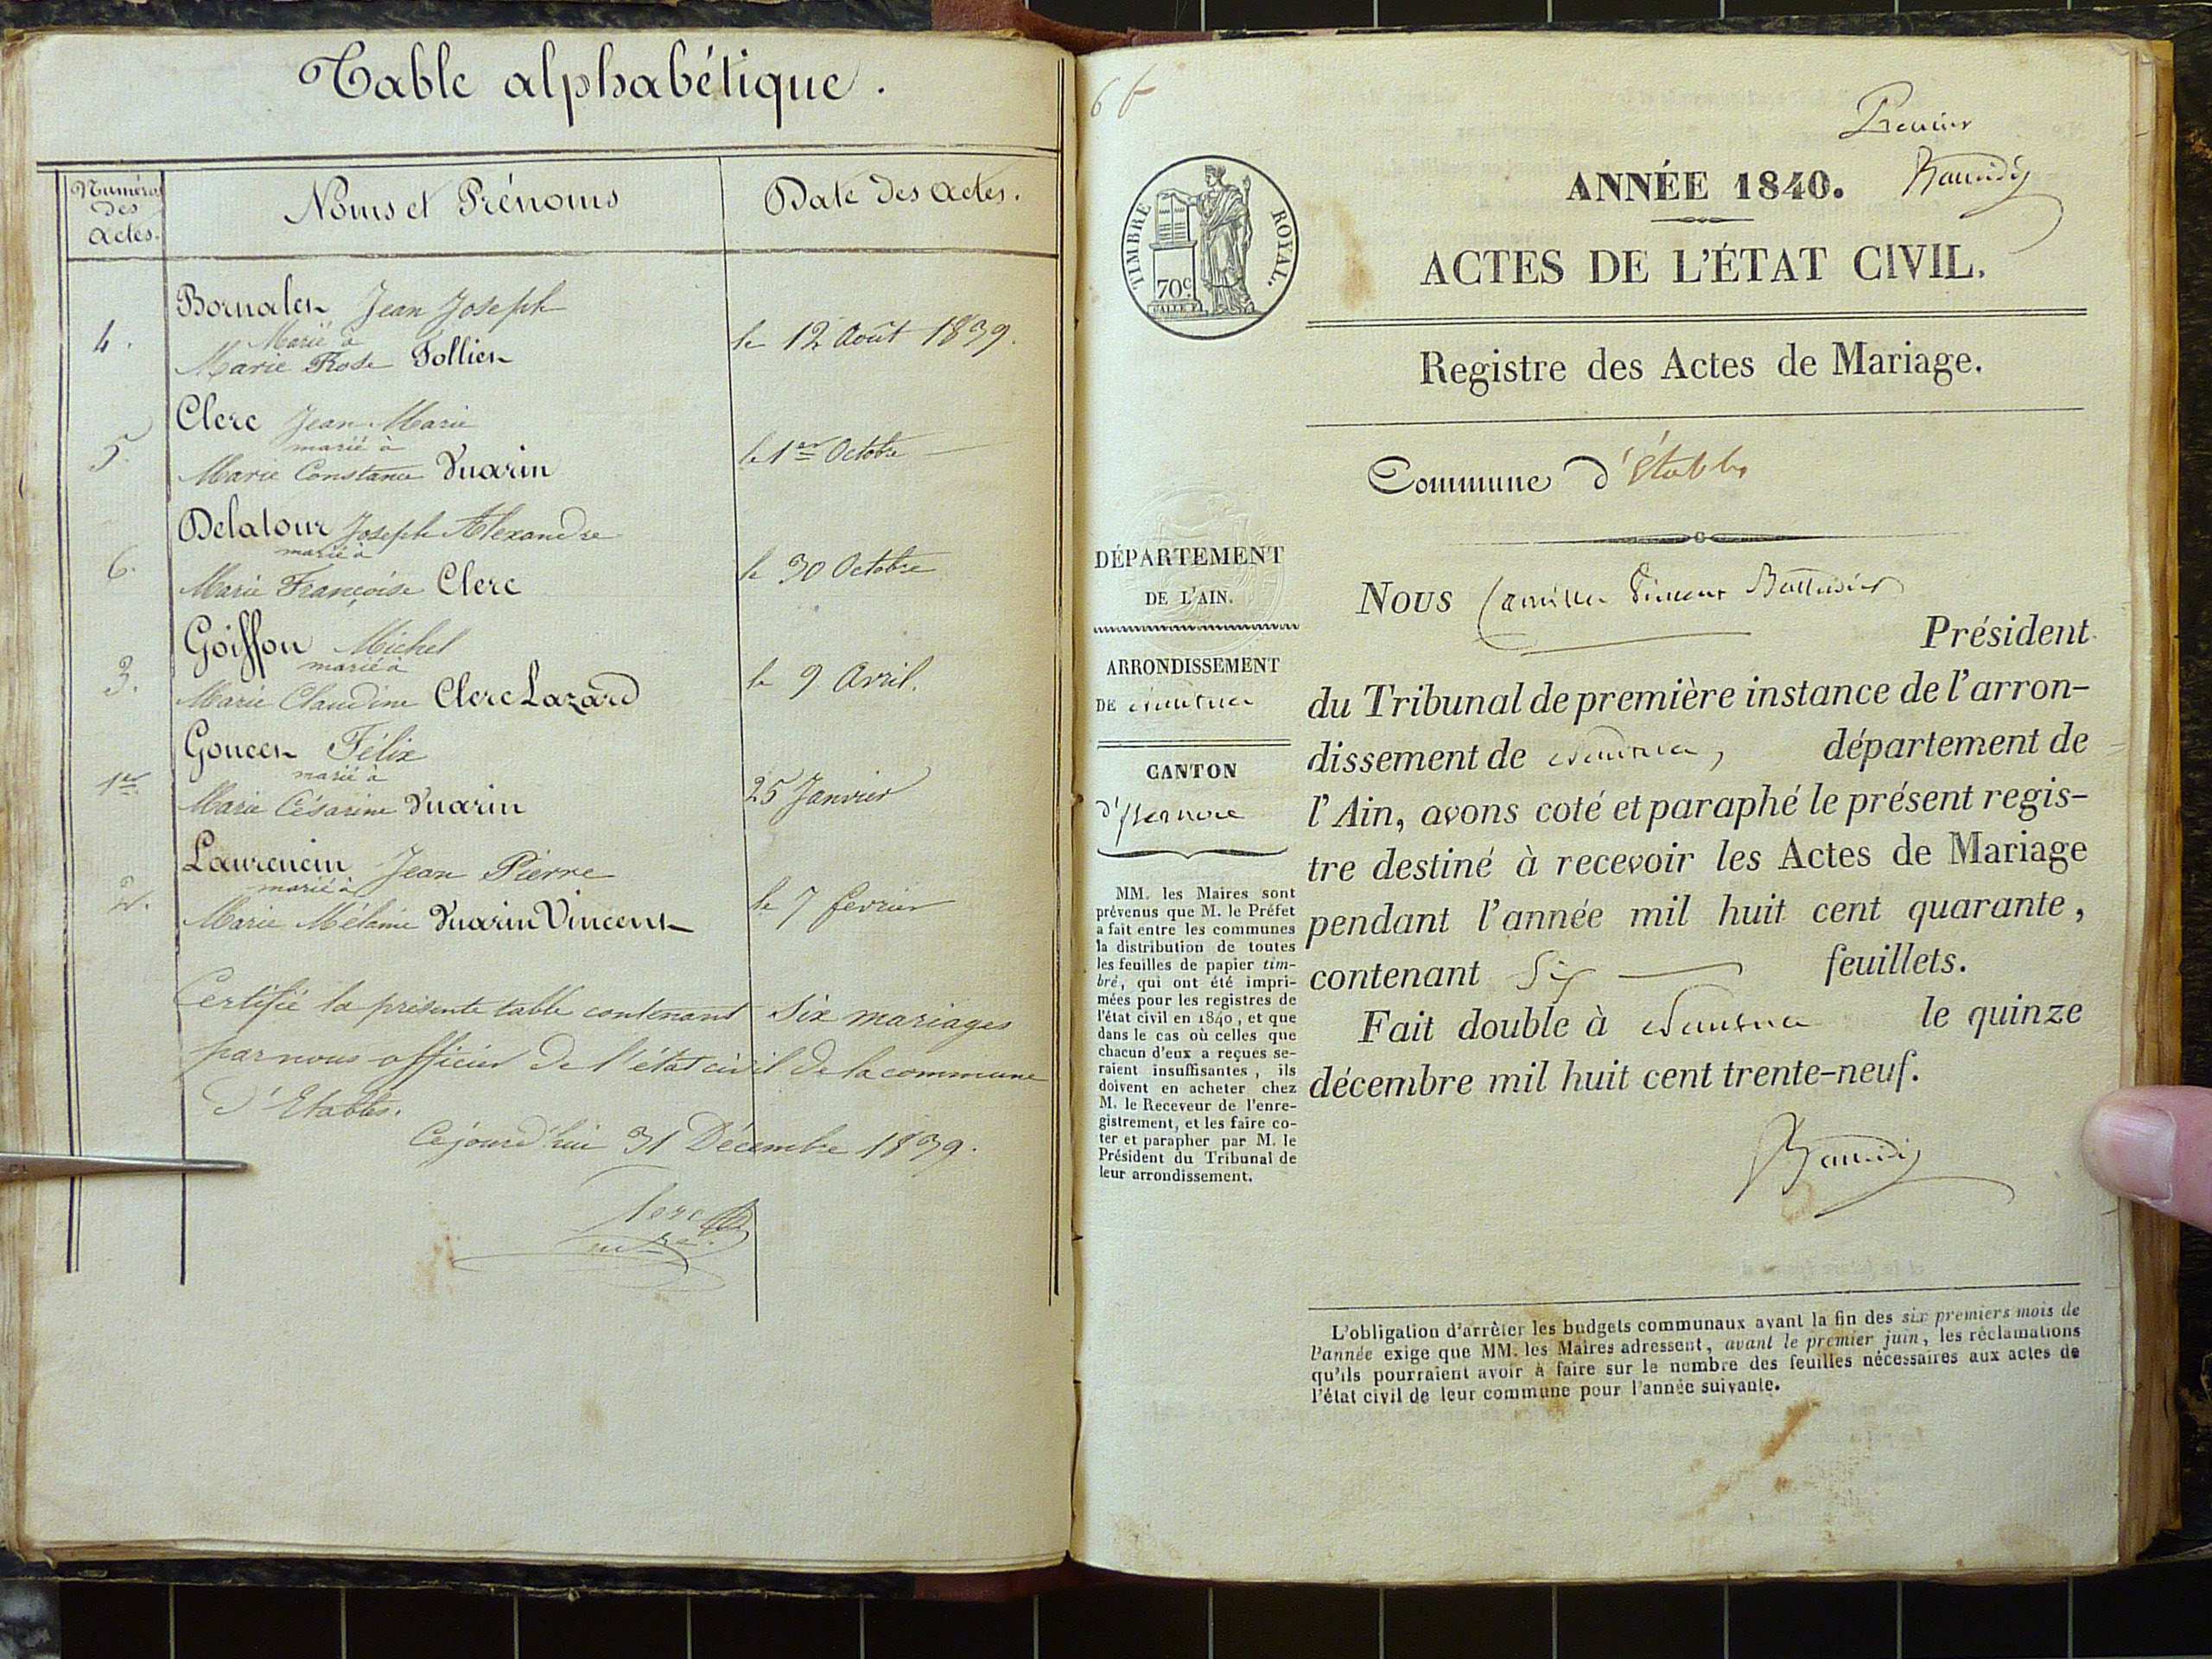 Table alphabétique.
Numéros
des
actes.
Noms et Prénoms
Date des actes.
Jean Joseph
4.
Marié à
le 12 Août 1839.
Marie Rose Tollier
Clerc Jean Marie
5.
marié à
le 1er Octobre
Marie Constance Vuarin
Delatour Joseph Alexandre
6.
marié à
le 30 Octobre
Marie Françoise Clerc
Goiffon Michel
3.
marié à
le 9 Avril.
Marie Claudine Clerc Lazard
Goucer Félix
1er
marié à
25 Janvier
Marie Césarine Vuarin
Laurencin Jean Pierre
2.
marié à
le 7 fevrier
Marie Mélanie Vuarin Vincent
Certifié la présente table contenant six mariages
par nous officier de l'état civil de la commune
d'Etables.
Cejourd'hui 31 Décembre 1839.
Clerc
Premier
ANNÉE 1840.
TIMBRE ROYAL.
70c
ACTES DE L'ÉTAT CIVIL.
Registre des Actes de Mariage.
Commune d'Étables
DÉPARTEMENT
DE L'AIN.
ARRONDISSEMENT
DE Nantua
CANTON
d'Izernore
MM. les Maires sont
prévenus que M. le Préfet
a fait entre les communes
la distribution de toutes
les feuilles de papier tim-
bré, qui ont été impri-
mées pour les registres de
l'état civil en 1840, et que
dans le cas où celles que
chacun d'eux a reçues se-
raient insuffisantes, ils
doivent en acheter chez
M. le Receveur de l'enre-
gistrement, et les faire co-
ter et parapher par M. le
Président du Tribunal de
leur arrondissement.
Nous Camille Vincent
Président
du Tribunal de première instance de l'arron-
dissement de Nantua, département de
l'Ain, avons coté et paraphé le présent regis-
tre destiné à recevoir les Actes de Mariage
pendant l'année mil huit cent quarante,
contenant Six feuillets.
Fait double à Nantua le quinze
décembre mil huit cent trente-neuf.
L'obligation d'arrêter les budgets communaux avant la fin des six premiers mois de
l'année exige que MM. les Maires adressent, avant le premier juin, les réclamations
qu'ils pourraient avoir à faire sur le nombre des feuilles nécessaires aux actes de
l'état civil de leur commune pour l'année suivante.